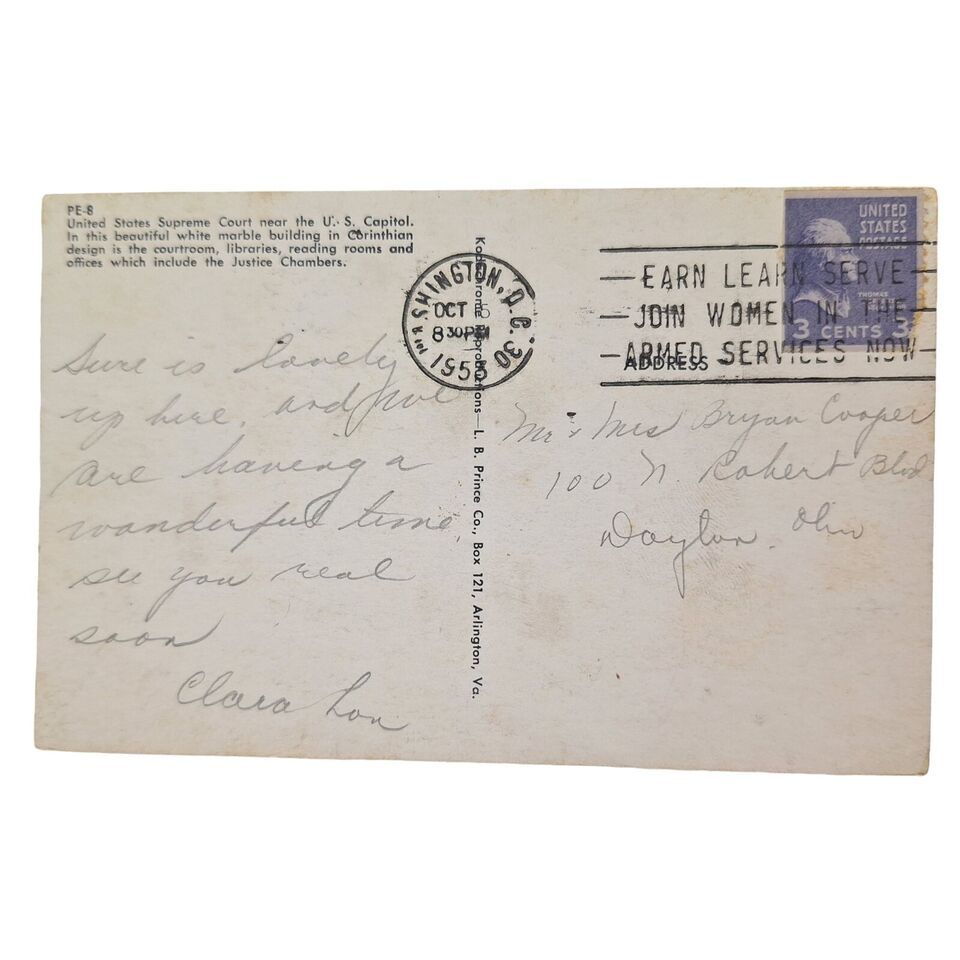 PE-8
United States Supreme Court near the U. S. Capitol.
In this beautiful white marble building in Corinthian
design is the courtroom, libraries, reading rooms and
offices which include the Justice Chambers.
Sure is lovely
up here. and we
are haveing a
wonderful time
see you real
soon
Clara Lou
Kodachrome Reproductions—L. B. Prince Co., Box 121, Arlington, Va.
WASHINGTON, D.C. 30
OCT
8 30PM
1955
EARN LEARN SERVE
JOIN WOMEN IN THE
ARMED SERVICES NOW
UNITED
STATES
POSTAGE
THOMAS
3 CENTS 3
ADDRESS
Mr & Mrs Bryan Cooper
100 N. Robert Blvd
Dayton. Ohio